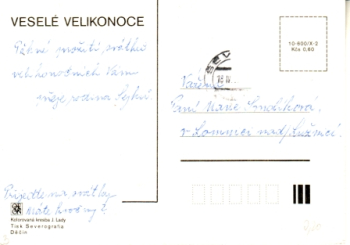 VESELÉ VELIKONOCE
Pěkné prožití svátků
velikonočních Vám
přeje rodina
Přijeďte na svátky
Vážená
Paní Marie Smolíková
v Lomnici nad Lužnicí
1D-600/X-2
Kčs 0,60
Kolorovaná kresba J. Lady
Tisk Severografia
Děčín